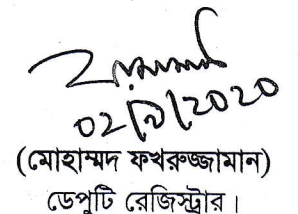 02/9/2020
(মোহাম্মদ ফখরুজ্জামান)
ডেপুটি রেজিস্ট্রার।